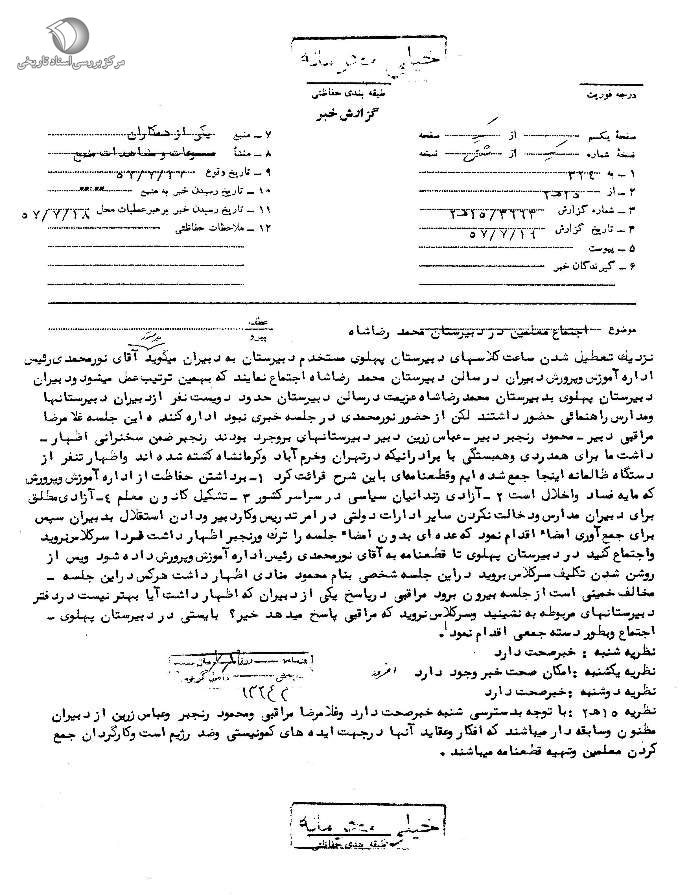 مرکز بررسی اسناد تاریخی
خیلی محرمانه
طبقه بندی حفاظتی
درجه فوریت
گزارش خبر
صفحهٔ یکم از صفحه
نسخهٔ شماره از شش نسخه
۱ـ به ۳۴۱
۲ـ از ۱۵هـ۲
۳ـ شماره گزارش
۴ـ تاریخ گزارش ۵۷/۷/۱۹
۵ـ پیوست
۶ـ گیرندگان خبر
۷ـ منبع یکی از همکاران
۸ـ منشأ مسموعات و مشاهدات منبع
۹ـ تاریخ وقوع
۱۰ـ تاریخ رسیدن خبر به منبع
۱۱ـ تاریخ رسیدن خبر برهبرعملیات محل ۵۷/۷/۱۸
۱۲ـ ملاحظات حفاظتی
موضوع اجتماع معلمین در دبیرستان محمد رضاشاه
عطف
پیرو
نزدیک تعطیل شدن ساعت کلاسهای دبیرستان پهلوی مستخدم دبیرستان به دبیران میگوید آقای نورمحمدی رئیس
اداره آموزش وپرورش دبیران در سالن دبیرستان محمد رضاشاه اجتماع نمایند که بهمین ترتیب عمل میشود ودبیران
دبیرستان پهلوی بدبیرستان محمد رضاشاه عزیمت درسالن دبیرستان حدود دویست نفر ازدبیران دبیرستانها
ومدارس راهنمائی حضور داشتند لکن از حضور نورمحمدی در جلسه خبری نبود اداره کننده این جلسه غلامرضا
مراقبی دبیر ـ محمود رنجبر دبیر ـ عباس زرین دبیر دبیرستانهای بروجرد بودند رنجبر ضمن سخنرانی اظهار ـ
داشت ما برای همدردی وهمبستگی با برادرانیکه درتهران وخرم آباد وکرمانشاه کشته شده اند واظهار تنفر از
دستگاه ظالمانه اینجا جمع شده ایم وقطعنامه‌ای باین شرح قرائت کرد ۱ـ برداشتن حفاظت از اداره آموزش وپرورش
که مایه فساد واخلال است ۲ـ آزادی زندانیان سیاسی در سراسر کشور ۳ـ تشکیل کانون معلم ۴ـ آزادی مطلق
برای دبیران مدارس ودخالت نکردن سایر ادارات دولتی در امر تدریس وکاردبیر ودادن استقلال بدبیران سپس
برای جمع آوری امضاء اقدام نمود که عده ای بدون امضاء جلسه را ترک ورنجبر اظهار داشت فردا سرکلاس نروید
واجتماع کنید در دبیرستان پهلوی تا قطعنامه به آقای نورمحمدی رئیس اداره آموزش وپرورش داده شود وپس از
روشن شدن تکلیف سرکلاس بروید دراین جلسه شخصی بنام محمود منادی اظهار داشت هرکس دراین جلسه ـ
مخالف خمینی است از جلسه بیرون برود مراقبی درپاسخ یکی از دبیران که اظهار داشت آیا بهتر نیست دردفتر
دبیرستانهای مربوطه به نشینید وسرکلاس نروید که مراقبی پاسخ میدهد خیر؟ بایستی در دبیرستان پهلوی ـ
اجتماع وبطور دسته جمعی اقدام نمود.
نظریه شنبه : خبرصحت دارد
نظریه یکشنبه : امکان صحت خبر وجود دارد
نظریه دوشنبه : خبرصحت دارد
نظریه ۱۵هـ۲ : با توجه بدسترسی شنبه خبرصحت دارد وغلامرضا مراقبی ومحمود رنجبر وعباس زرین از دبیران
مظنون وسابقه دار میباشند که افکار وعقاید آنها درجهت ایده های کمونیستی وضد رژیم است وکارگردان جمع
کردن معلمین وتهیه قطعنامه میباشند .
خیلی محرمانه
طبقه بندی حفاظتی